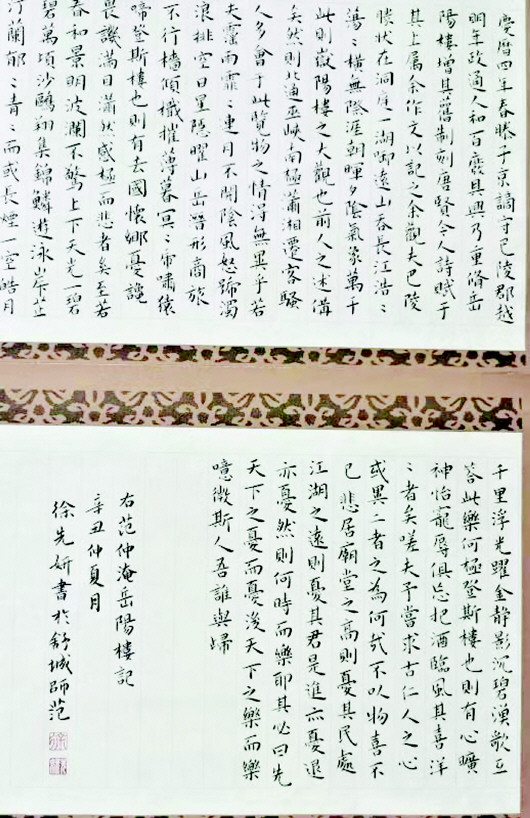 慶曆四年春滕子京謫守巴陵郡越
明年政通人和百廢具興乃重脩岳
陽樓增其舊制刻唐賢今人詩賦于
其上屬余作文以記之余觀夫巴陵
勝狀在洞庭一湖銜遠山吞長江浩〻
蕩〻橫無際涯朝暉夕陰氣象萬千
此則嶽陽樓之大觀也前人之述備
矣然則北通巫峽南極瀟湘遷客騷
人多會于此覽物之情得無異乎若
夫霪雨霏〻連月不開陰風怒號濁
浪排空日星隱曜山岳潛形商旅
不行檣傾檝摧薄暮冥〻虎嘯猿
啼登斯樓也則有去國懷鄉憂讒
畏譏滿目蕭然感極而悲者矣至若
春和景明波瀾不驚上下天光一碧
碧萬頃沙鷗翔集錦鱗遊泳岸芷
汀蘭郁〻青〻而或長煙一空皓月
千里浮光躍金静影沉碧漁歌互
荅此樂何極登斯樓也則有心曠
神怡寵辱俱忘把酒臨風其喜洋
〻者矣嗟夫予嘗求古仁人之心
或異二者之為何哉不以物喜不
己悲居廟堂之高則憂其民處
江湖之遠則憂其君是進亦憂退
亦憂然則何時而樂耶其必曰先
天下之憂而憂後天下之樂而樂
噫微斯人吾誰與歸
右范仲淹岳陽樓記
辛丑仲夏月
徐先妍書於舒城師范